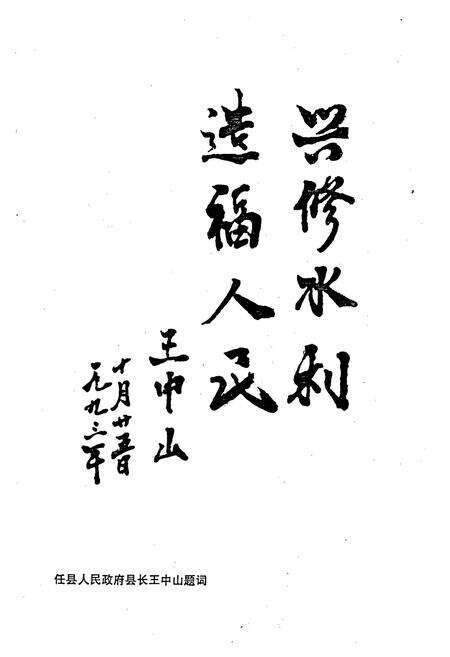 兴修水利
造福人民
王中山
十月廿五日
一九九三年
任县人民政府县长王中山题词